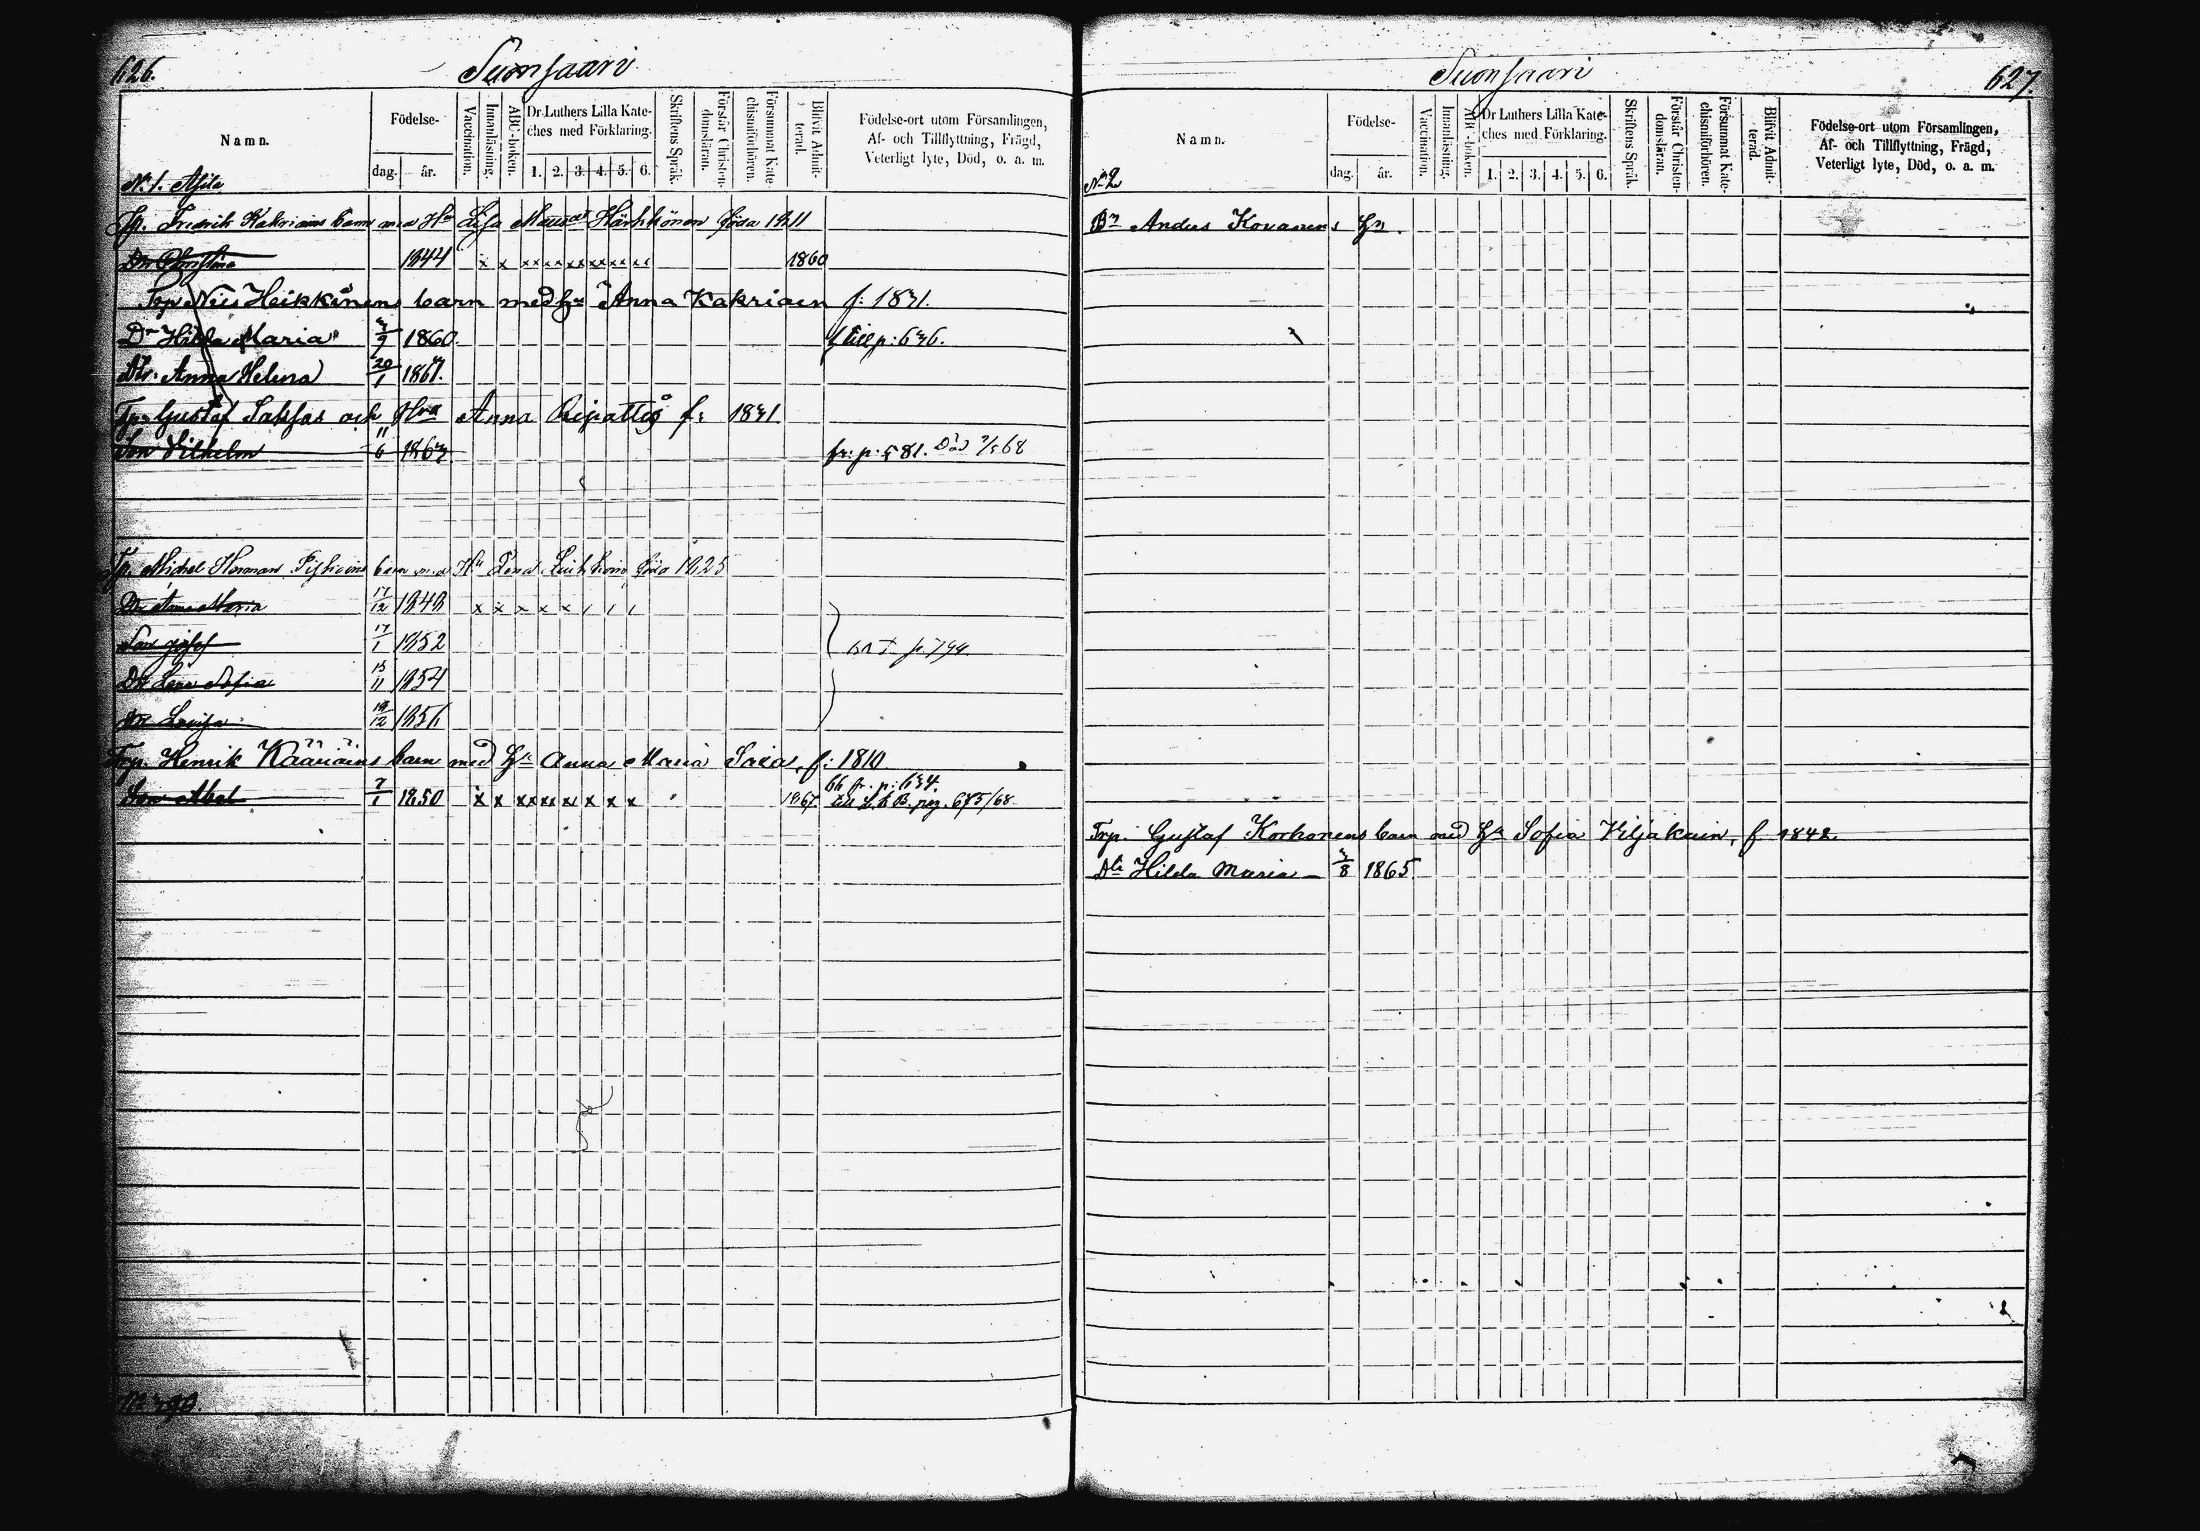 626.
Suonsaari
Namn.
Födelse-
dag.
år.
Vaccination.
Innanläsning.
ABC-boken.
Dr Luthers Lilla Kate-
ches med Förklaring.
1. 2. 3. 4. 5. 6.
Skriftens Språk.
Förstår Christen-
domsläran.
Försummat Kate-
chismiförhören.
Blifvit Admit-
terad.
Födelse-ort utom Församlingen,
Af- och Tillflyttning, Frägd,
Veterligt lyte, Död, o. a. m.
N:1. Asila
Fredrik Kakriains barn med Hu Lisa Härkkönen föda 1811
Dr Christina 1844 x x x x x x x x x x 1860
Trp Nils Heikkinens barn med Hu Anna Kakriain f: 1831.
Dr Hilda Maria 3/9 1860. till p: 636.
Dtr: Anna Helena 20/1 1867.
Trp: Gustaf Saksas och Hru Anna Ripattis f: 1831
Son Vilhelm 11/6 1863 fr: p: 581. Död 7/5 68
Michel Herman barn med Hu Lena föda 1825
Dr Anna Maria 17/12 1848 x x x x x
Son Josef 17/1 1852
p 799.
Dr Lena Sofia 13/11 1854
Dr Lovisa 19/12 1856
Trp. Henrik Kääriäins barn med Hu Anna Maria f: 1810
Son Abel 7/1 1850 x x x x x x x x x 1867 66 fr. p: 634.
till L. K B. pag. 675/68
627.
Suonsaari
Namn.
Födelse-
dag.
år.
Vaccination.
Innanläsning.
ABC-boken.
Dr Luthers Lilla Kate-
ches med Förklaring.
1. 2. 3. 4. 5. 6.
Skriftens Språk.
Förstår Christen-
domsläran.
Försummat Kate-
chismiförhören.
Blifvit Admit-
terad.
Födelse-ort utom Församlingen,
Af- och Tillflyttning, Frägd,
Veterligt lyte, Död, o. a. m.
N:2
Bn Anders Kovanens Hu.
Trp. Gustaf Korhonens barn med Hu Sofia Viljakain, f 1842.
Dtr Hilda Maria 3/8 1865